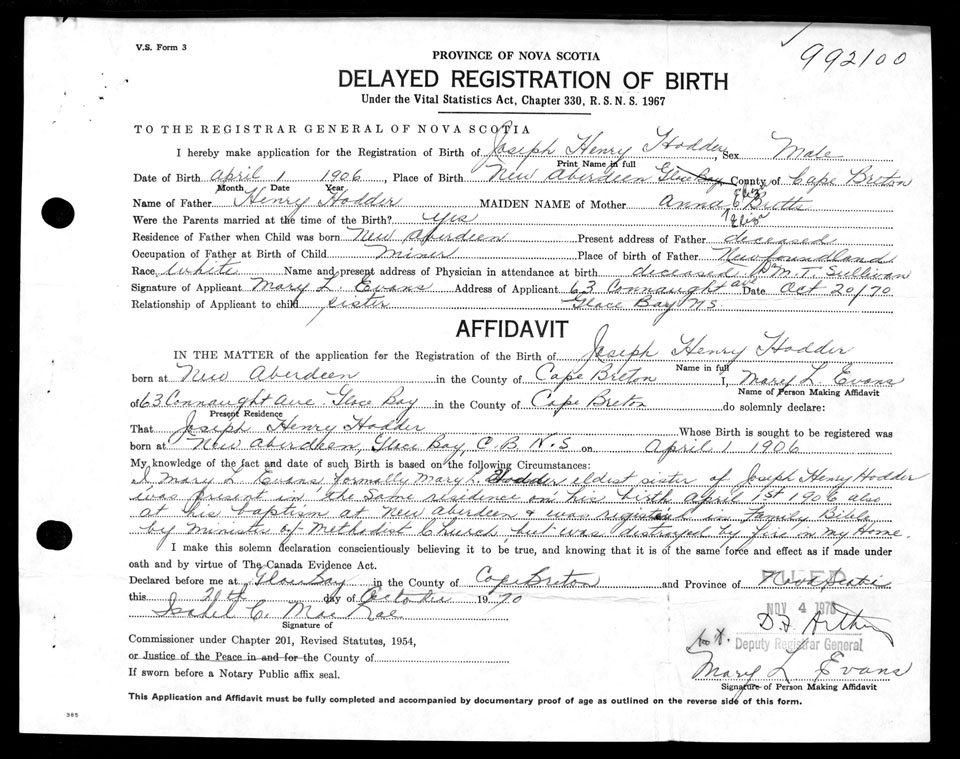 V.S. Form 3
992100
PROVINCE OF NOVA SCOTIA
DELAYED REGISTRATION OF BIRTH
Under the Vital Statistics Act, Chapter 330, R. S. N. S. 1967
TO THE REGISTRAR GENERAL OF NOVA SCOTIA
I hereby make application for the Registration of Birth of Joseph Henry Hodder, Sex Male
Print Name in full
Date of Birth April 1 1906, Place of Birth New Aberdeen Glace Bay County of Cape Breton
Month Date Year
Eliz
Name of Father Henry Hodder MAIDEN NAME of Mother Anna E Butts
Eliza
Were the Parents married at the time of the Birth? yes
Residence of Father when Child was born New Aberdeen Present address of Father deceased
Occupation of Father at Birth of Child Miner Place of birth of Father Newfoundland
Race White Name and present address of Physician in attendance at birth deceased Dr M. T. Sullivan
Signature of Applicant Mary L. Evans Address of Applicant 63 Connaught ave Date Oct 20/70
Relationship of Applicant to child sister Glace Bay N.S.
AFFIDAVIT
IN THE MATTER of the application for the Registration of the Birth of Joseph Henry Hodder
Name in full
born at New Aberdeen in the County of Cape Breton I, Mary L Evans
Name of Person Making Affidavit
of 63 Connaught Ave Glace Bay in the County of Cape Breton do solemnly declare:
Present Residence
That Joseph Henry Hodder Whose Birth is sought to be registered was
born at New Aberdeen, Glace Bay, C. B. N. S on April 1 1906
My knowledge of the fact and date of such Birth is based on the following Circumstances:
I Mary L Evans formally Mary L. Hodder eldest sister of Joseph Henry Hodder
was present in the same residence on his birth April 1st 1906 also
at his baptism at New Aberdeen & was registered in Family Bible
by Minister of Methodist Church, but was destroyed by fire in my Home.
I make this solemn declaration conscientiously believing it to be true, and knowing that it is of the same force and effect as if made under
oath and by virtue of The Canada Evidence Act.
Declared before me at Glace Bay in the County of Cape Breton and Province of Nova Scotia
FILED
this 20th day of October 1970
NOV 4 1970
Isabel C. Mac Rae
Signature of
D. F. Arthur
Deputy Registrar General
Commissioner under Chapter 201, Revised Statutes, 1954,
or Justice of the Peace in and for the County of
Mary L Evans
If sworn before a Notary Public affix seal.
Signature of Person Making Affidavit
This Application and Affidavit must be fully completed and accompanied by documentary proof of age as outlined on the reverse side of this form.
385